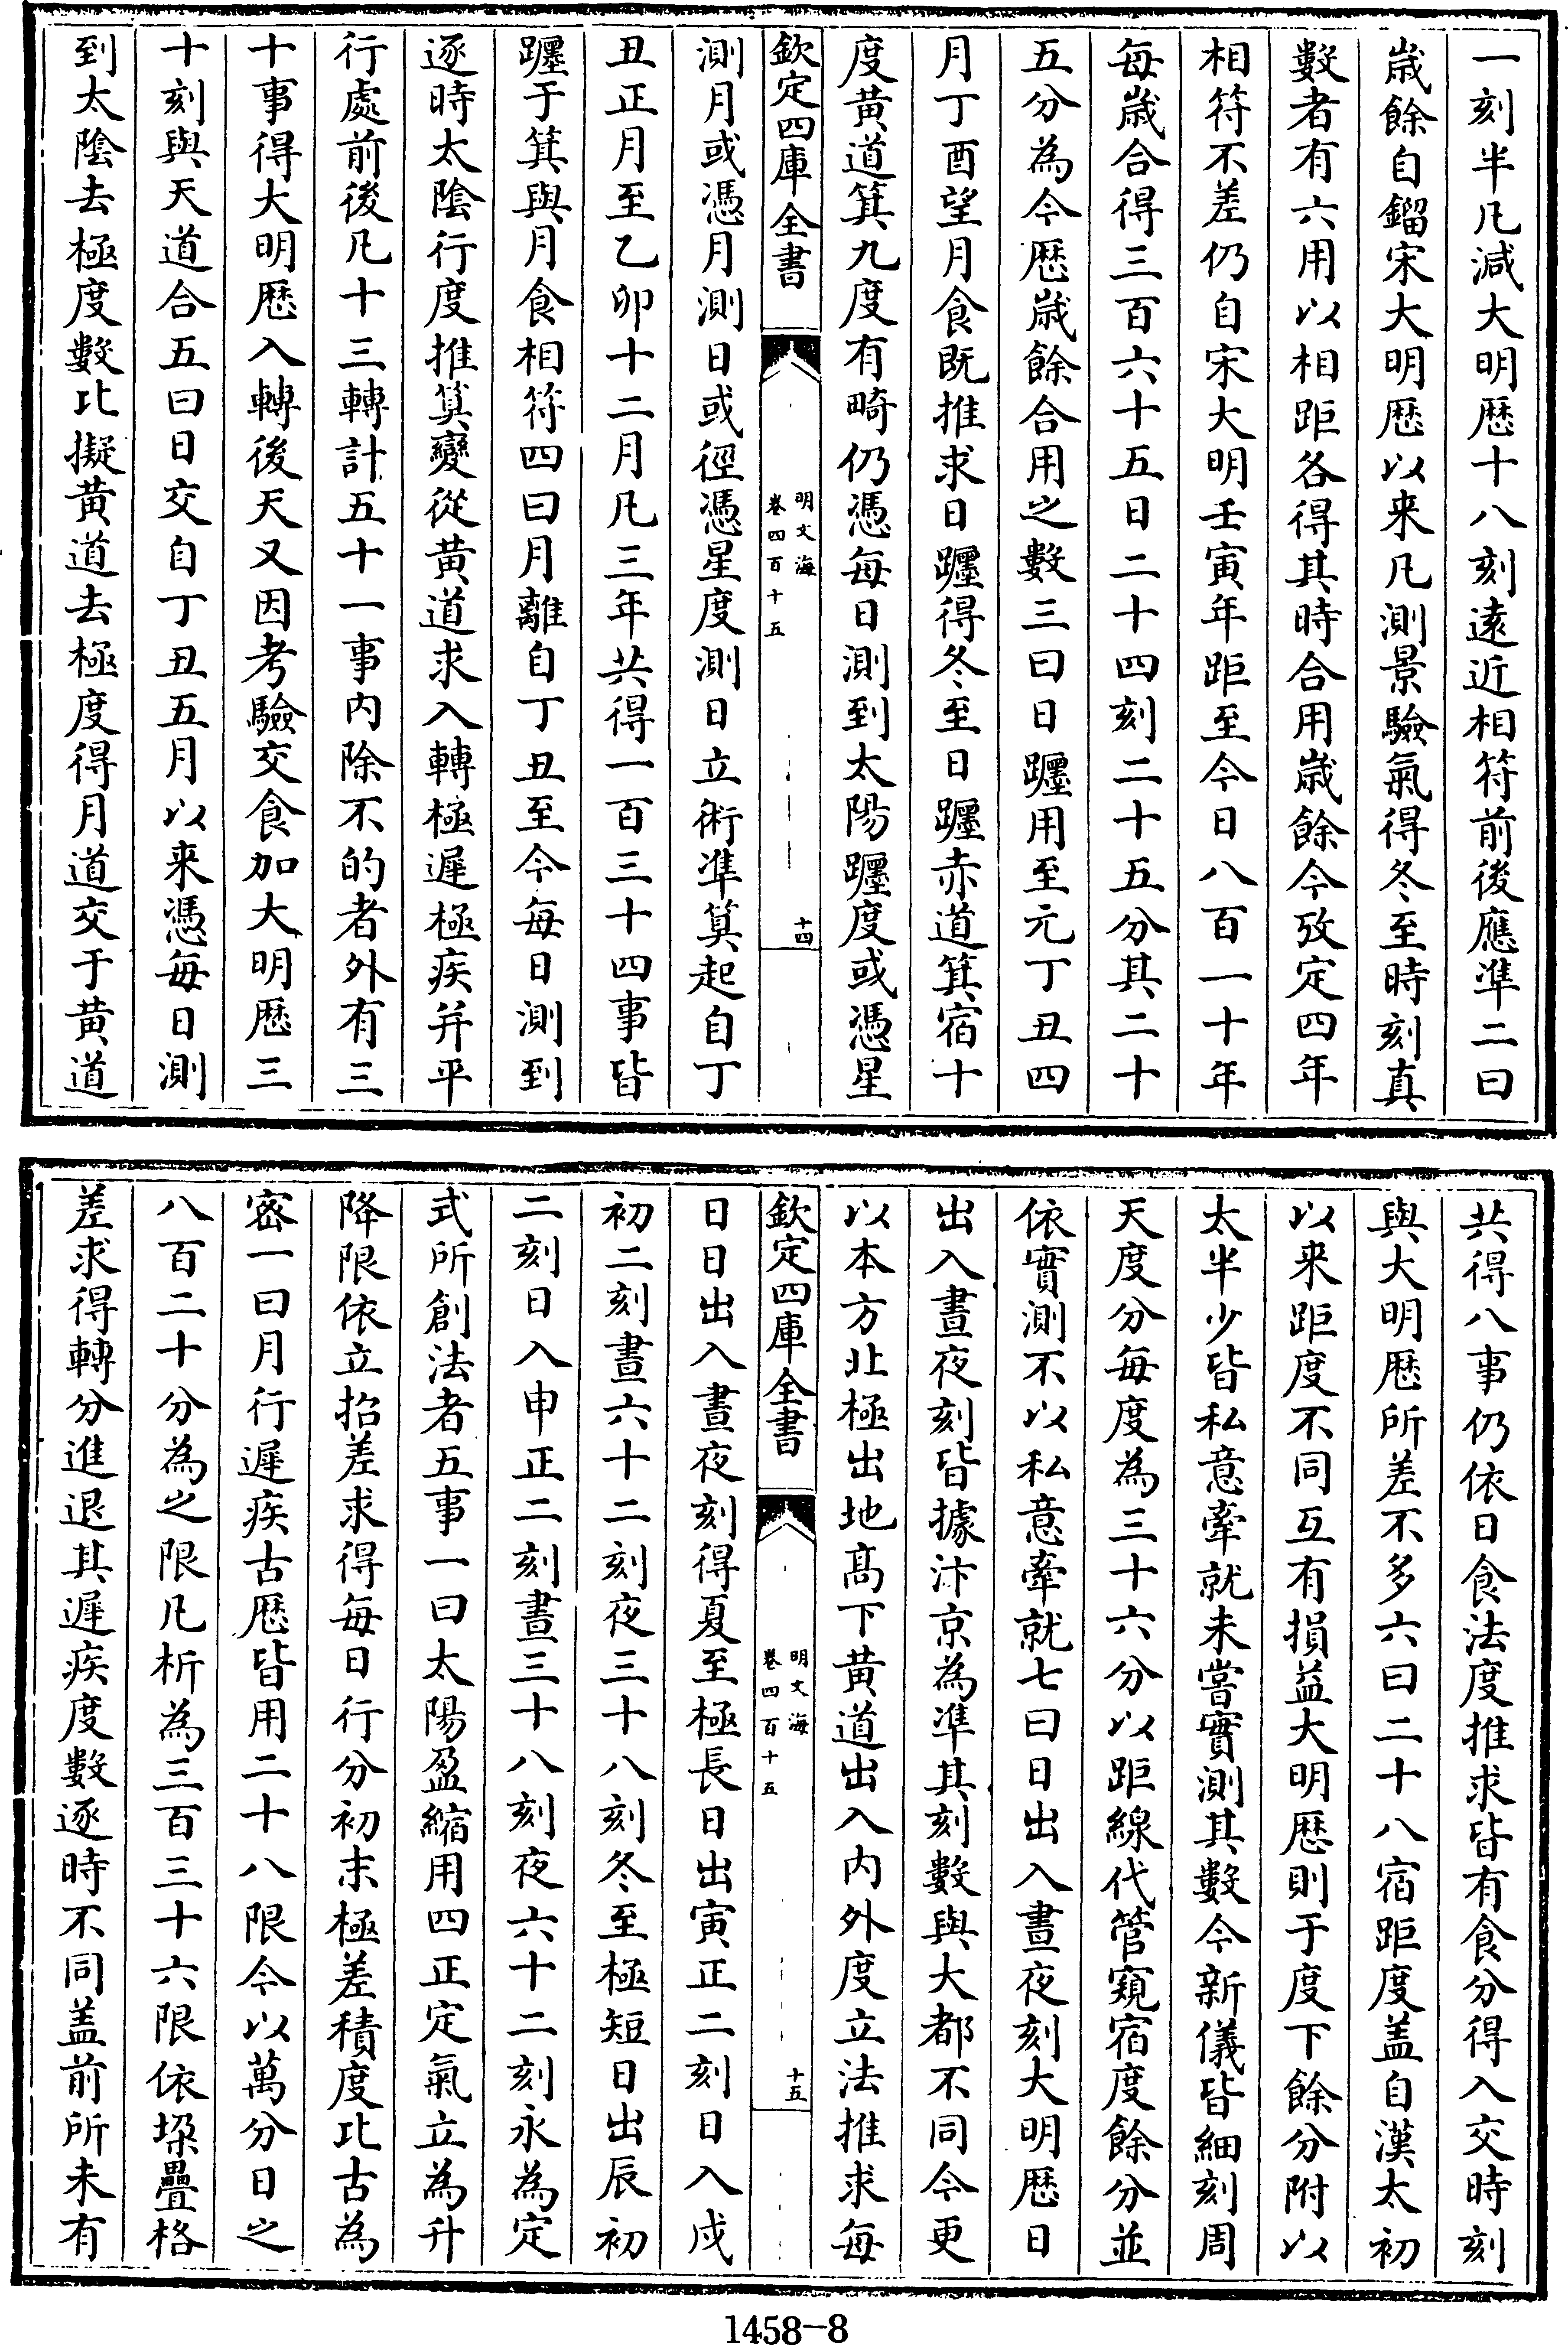 一刻半凡減大明厯十八刻逺近相符前後應凖二曰
歳餘自鎦宋大明厯以来凡測景驗氣得冬至時刻真
數者有六用以相距各得其時合用歳餘今攷定四年
相符不差仍自宋大明壬寅年距至今日八百一十年
每歳合得三百六十五日二十四刻二十五分其二十
五分為今厯歳餘合用之數三曰日躔用至元丁丑四
月丁酉望月食既推求日躔得冬至日躔赤道箕宿十
度黄道箕九度有畸仍憑每日測到太陽躔度或憑星
欽定四庫全書
明文海
卷四百十五
十四
測月或憑月測日或徑憑星度測日立術凖算起自丁
丑正月至乙卯十二月凡三年共得一百三十四事皆
躔于箕與月食相符四曰月離自丁丑至今每日測到
逐時太陰行度推算變從黄道求入轉極遲極疾并平
行處前後凡十三轉計五十一事内除不的者外有三
十事得大明厯入轉後天又因考驗交食加大明厯三
十刻與天道合五曰日交自丁丑五月以来憑每日測
到太陰去極度數比擬黄道去極度得月道交于黄道
共得八事仍依日食法度推求皆有食分得入交時刻
與大明厯所差不多六曰二十八宿距度盖自漢太初
以来距度不同互有損益大明厯則于度下餘分附以
太半少皆私意牽就未嘗實測其數今新儀皆細刻周
天度分每度為三十六分以距線代管窺宿度餘分並
依實測不以私意牽就七曰日出入晝夜刻大明厯日
出入晝夜刻皆據汴京為凖其刻數與大都不同今更
以本方北極出地髙下黄道出入内外度立法推求每
欽定四庫全書
明文海
卷四百十五
十五
日日出入晝夜刻得夏至極長日出寅正二刻日入戌
初二刻晝六十二刻夜三十八刻冬至極短日出辰初
二刻日入申正二刻晝三十八刻夜六十二刻永為定
式所創法者五事一曰太陽盈縮用四正定氣立為升
降限依立招差求得每日行分初末極差積度比古為
宻一曰月行遲疾古厯皆用二十八限今以萬分日之
八百二十分為之限凡析為三百三十六限依垜疊格
差求得轉分進退其遲疾度數逐時不同盖前所未有
1458-8